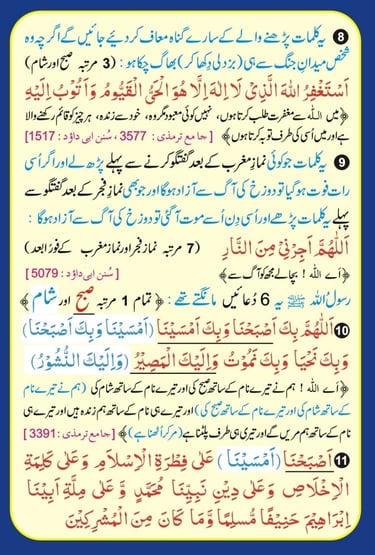 8 یہ کلمات پڑھنے والے کے سارے گناہ معاف کر دیئے جائیں گے اگرچہ وہ
شخص میدانِ جنگ سے ہی (بزدلی دِکھا کر) بھاگ چکا ہو : (3 مرتبہ صبح اور شام)
اَسْتَغْفِرُ اللّٰهَ الَّذِیْ لَآ اِلٰهَ اِلَّا هُوَ الْحَیُّ الْقَیُّوْمُ وَ اَتُوْبُ اِلَیْهِ
﴿میں اللہ سے مغفرت طلب کرتا ہوں، نہیں کوئی معبود مگر وہ، خود سے زندہ، ہر چیز کو قائم رکھنے والا
ہے اور میں اُسی کی طرف توبہ کرتا ہوں﴾ [جامع ترمذی : 3577 ، سُنن ابی داوٗد : 1517]
9 یہ کلمات جو کوئی نمازِ مغرب کے بعد گفتگو کرنے سے پہلے پڑھ لے اور اگر اُسی
رات فوت ہو گیا تو دوزخ کی آگ سے آزاد ہو گا اور جو بھی نمازِ فجر کے بعد گفتگو سے
پہلے یہ کلمات پڑھے اور اُسی دِن اُسے موت آ گئی تو دوزخ کی آگ سے آزاد ہو گا :
اَللّٰهُمَّ اَجِرْنِیْ مِنَ النَّارِ (7 مرتبہ نمازِ فجر اور نمازِ مغرب کے فورًا بعد)
﴿اَے اللہ ! بچا لے مجھ کو آگ سے﴾ [سُنن ابی داوٗد : 5079]
رسولُ اللہ ﷺ یہ 6 دُعائیں مانگتے تھے : ﴿تمام 1 مرتبہ صبح اور شام﴾
10 اَللّٰهُمَّ بِكَ اَصْبَحْنَا وَ بِكَ اَمْسَیْنَا (اَمْسَیْنَا وَ بِكَ اَصْبَحْنَا)
وَ بِكَ نَحْیَا وَ بِكَ نَمُوْتُ وَ اِلَیْكَ الْمَصِیْرُ (وَ اِلَیْكَ النُّشُوْرُ)
﴿اَے اللہ ! ہم نے تیرے نام کے ساتھ صبح کی اور تیرے نام کے ساتھ شام کی (ہم نے تیرے نام
کے ساتھ شام کی اور تیرے نام کے ساتھ صبح کی) اور تیرے ہی نام کے ساتھ ہم زندہ ہیں اور تیرے ہی
نام کے ساتھ ہم مریں گے اور تیری ہی طرف پلٹنا ہے (مر کر اُٹھنا ہے)﴾ [جامع ترمذی : 3391]
11 اَصْبَحْنَا (اَمْسَیْنَا) عَلٰی فِطْرَةِ الْاِسْلَامِ وَ عَلٰی كَلِمَةِ
الْاِخْلَاصِ وَ عَلٰی دِیْنِ نَبِیِّنَا مُحَمَّدٍ وَّ عَلٰی مِلَّةِ اَبِیْنَا
اِبْرَاهِیْمَ حَنِیْفًا مُّسْلِمًا وَّ مَا كَانَ مِنَ الْمُشْرِكِیْنَ